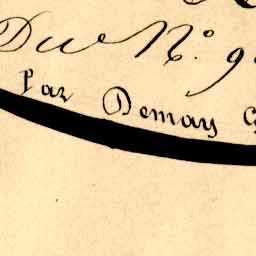 Due N.º 9
Par Demay